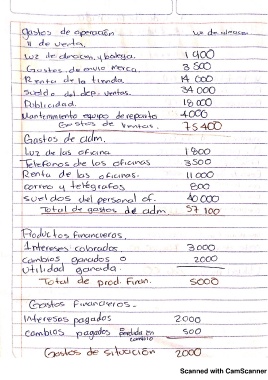 gastos de operación
de venta.
Luz de almacen y bodega. 1 400
Gastos de envio merca. 3 500
Renta de la tienda 14 000
sueldo del dep. ventas. 34 000
Publicidad. 18 000
Mantenimiento equipo de reparto 4000
Gastos de ventas. 75 400
Gastos de adm.
Luz de las oficina 1800
Telefonos de los oficinas 3500
Renta de las oficinas. 11 000
correo y telégrafos 800
sueldos del personal of. 40 000
Total de gastos de adm. 57 100
Productos financieros.
Intereses cobrados 3 000
cambios ganados o 2000
utilidad ganada.
Total de prod. Finan. 5000
Gastos Financieros.
Intereses pagados 2000
cambios pagados Perdida en cambio 500
Gastos de situación 2000
Scanned with CamScanner